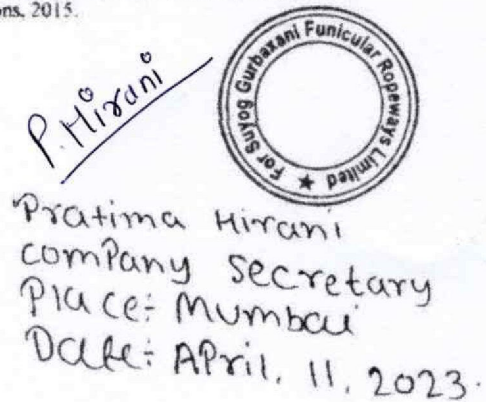 ons, 2015.
P. Hirani
For Suyog Gurbaxani Funicular Ropeways Limited ★
Pratima Hirani
company secretary
Place: Mumbai
Date: April. 11. 2023.